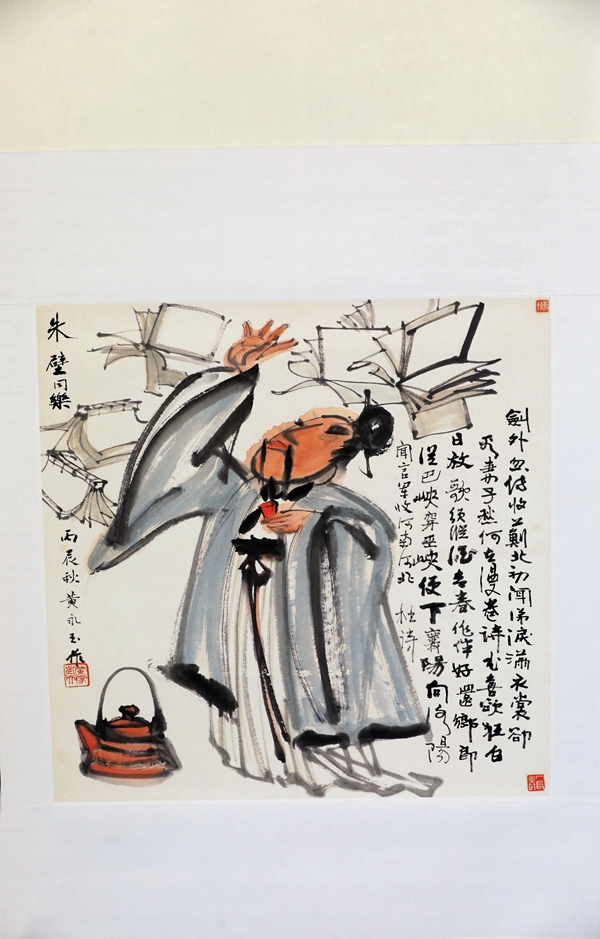 劍外忽傳收薊北初聞涕淚滿衣裳卻
看妻子愁何在漫卷詩書喜欲狂白
日放歌須縱酒青春作伴好還鄉即
從巴峽穿巫峽便下襄陽向洛陽
聞官軍收河南河北 杜詩
朱璧同樂
丙辰秋 黃永玉作